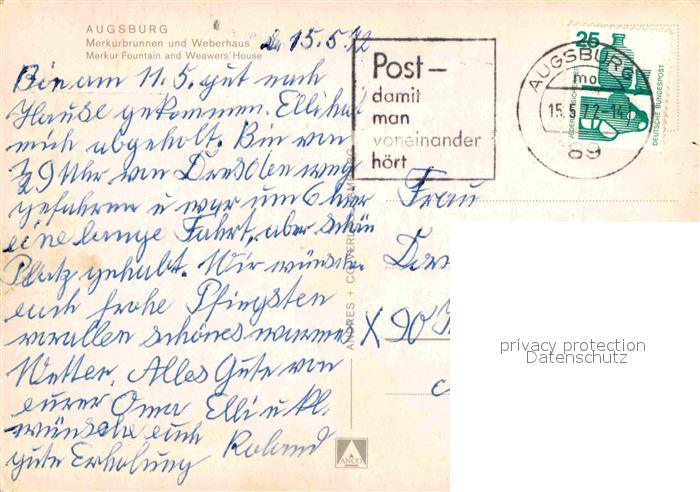 AUGSBURG
Merkurbrunnen und Weberhaus
Merkur Fountain and Weawers' House
15.5.72
Bin am 11.5. gut nach
Hause gekommen. Elli hat
mich abgeholt. Bin von
½9 Uhr von Dresden weg
gefahren u war um 6 hier
eine lange Fahrt, aber schön
Platz gehabt. Wir wünschen
euch frohe Pfingsten
vorallen schönes warmes
Wetter. Alles Gute von
eurer Oma Elli u kl.
Roland
wünsche euch
gute Erholung
Post–
damit
man
voneinander
hört
AUGSBURG
mo
15.5.72-14
89
25
DEUTSCHE BUNDESPOST
ANDRES + CO VERLAG
ANCO
Frau
X 90
privacy protection
Datenschutz